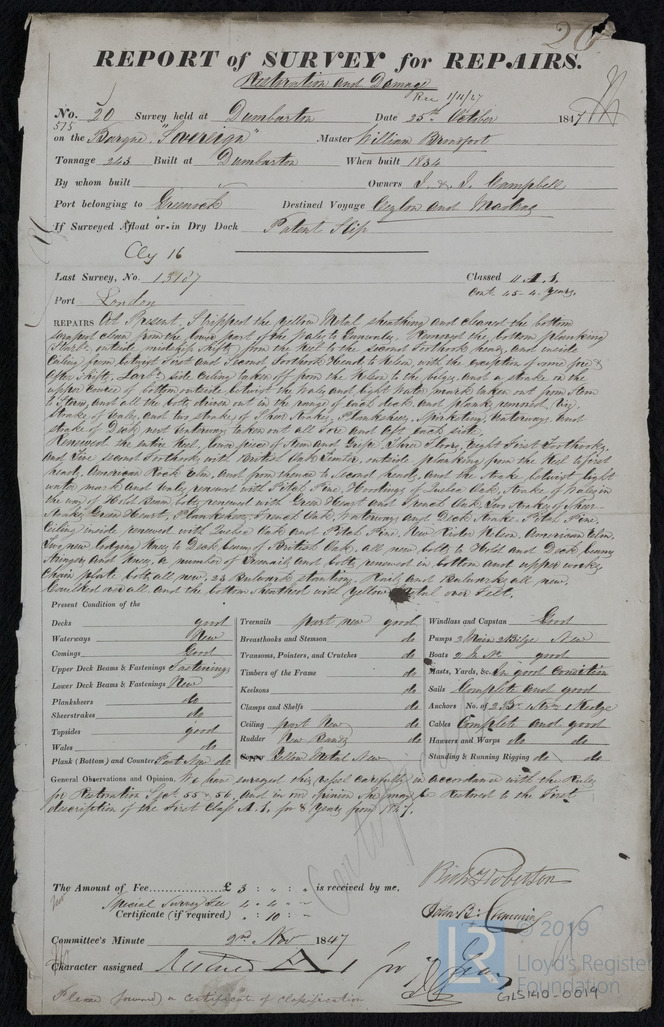 20
REPORT of SURVEY for REPAIRS.
Restoration and Damage
Rec 1/11/47
No. 20 Survey held at Dumbarton Date 25th October 1847
575
on the Barque "Sovereign" Master William
Tonnage 243 Built at Dumbarton When built 1834
By whom built Owners J. & J. Campbell
Port belonging to Greenock Destined Voyage Ceylon and Madras
If Surveyed Afloat or in Dry Dock Patent Slip
Cly 16
Last Survey, No. 13187 Classed A. 1.
Port London Cont. 45-4 Years,
REPAIRS At Present, Stripped the yellow Metal sheathing and cleaned the bottom
scraped clean from the lower part of the Wales to Removed the bottom planking
outside amidships from the Keel to the Second Foothook heads and inside
Ceiling from betwixt First and Second Foothook Heads to Kelson, with the exception of some fore &
After Shifts, Larbd side Ceiling taken off from the Kelson to the bilge, and a strake in the
upper course of bottom outside betwixt the Wales and Light Water mark taken out from Stem
to Stern, and all the bolts driven out in the range of each deck and plank removed, Viz,
Strake of Wales, and two strakes of Sheer Strakes, Planksheer, Spirketing, Waterways, and
strake of Deck next Waterway taken out all fore and aft, each side.
Renewed the entire Keel, lower piece of Stem and Gripe, Three Floors, Eight First Foothooks,
and Five Second Foothooks with British Oak Timber, outside planking from the Keel to first
heads, American Rock Elm, and from thence to Second heads, and the strake betwixt light
water mark and Wales renewed with Pitch Pine, of Quebec Oak, Strake of Wales in
the way of Hold Beam bolts renewed with Green Heart and French Oak, Two Strakes of Sheer
Strakes Green Heart, Planksheer French Oak, Waterway and Deck Strake Pitch Pine,
Ceiling inside renewed with Quebec Oak and Pitch Pine, New Rider Kelson, American Elm,
Two new lodging Knees to Deck beams of British Oak, all new bolts to Hold and Deck beams
Stringers and Knees, a number of Treenails and bolts renewed in bottom and upper works,
Chain plate bolts all new, 23 Bulwark stantions, Rails and Bulwarks all new.
Caulked over all and the bottom sheathed with yellow Metal over Felt.
Present Condition of the
Decks good
Waterways New
Comings Good
Upper Deck Beams & Fastenings Fastenings
Lower Deck Beams & Fastenings New
Planksheers do
Sheerstrakes do
Topsides good
Wales do
Plank (Bottom) and Counter Part New do
Treenails part new good
Breasthooks and Stemson do
Transoms, Pointers, and Crutches do
Timbers of the Frame do
Keelsons do
Clamps and Shelfs do
Ceiling part New do
Rudder New Bands do
Copper Yellow Metal New
Windlass and Capstan Good
Pumps 2 Main 2 Bilge New
Boats 2 in No. good
Masts, Yards, &c. In good Condition
Sails Complete and good
Anchors No. of 2 Br. 1 Str. 1 Kedge
Cables Complete and good
Hawsers and Warps do do
Standing & Running Rigging do do
General Observations and Opinion. We have surveyed this vessel carefully in accordance with the Rules
for Restoration Sect. 55 & 56, and in our opinion she may be Restored to the First
description of the First Class A. 1. for 8 Years from 1847.
The Amount of Fee £ 3 : " : " is received by me,
Special Survey Fee 4 . 4 . -
Certificate (if required) " : 10 : -
Richd Roberton
John B. Cumming
Committee's Minute 2nd Nov 1847
Character assigned Restored A 1 for
Please forward a certificate of classification
© 2019
LR
Lloyd's Register
Foundation
GLS140-0019